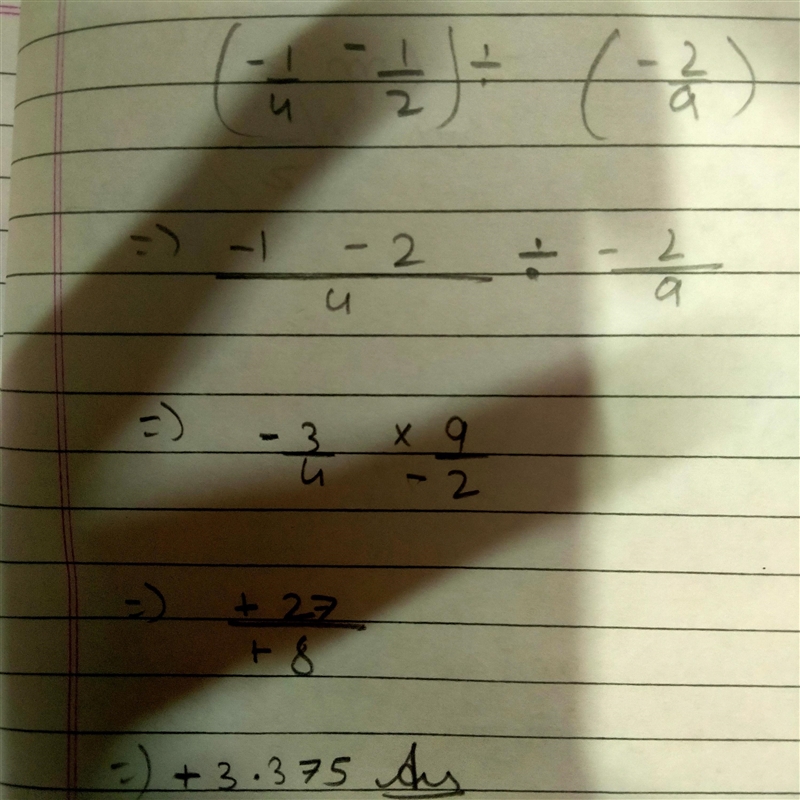 (-1/4 - 1/2) ÷ (-2/9)
=) -1 - 2/4 ÷ -2/9
=) -3/4 × 9/-2
=) +27/+8
=) +3.375 Ans